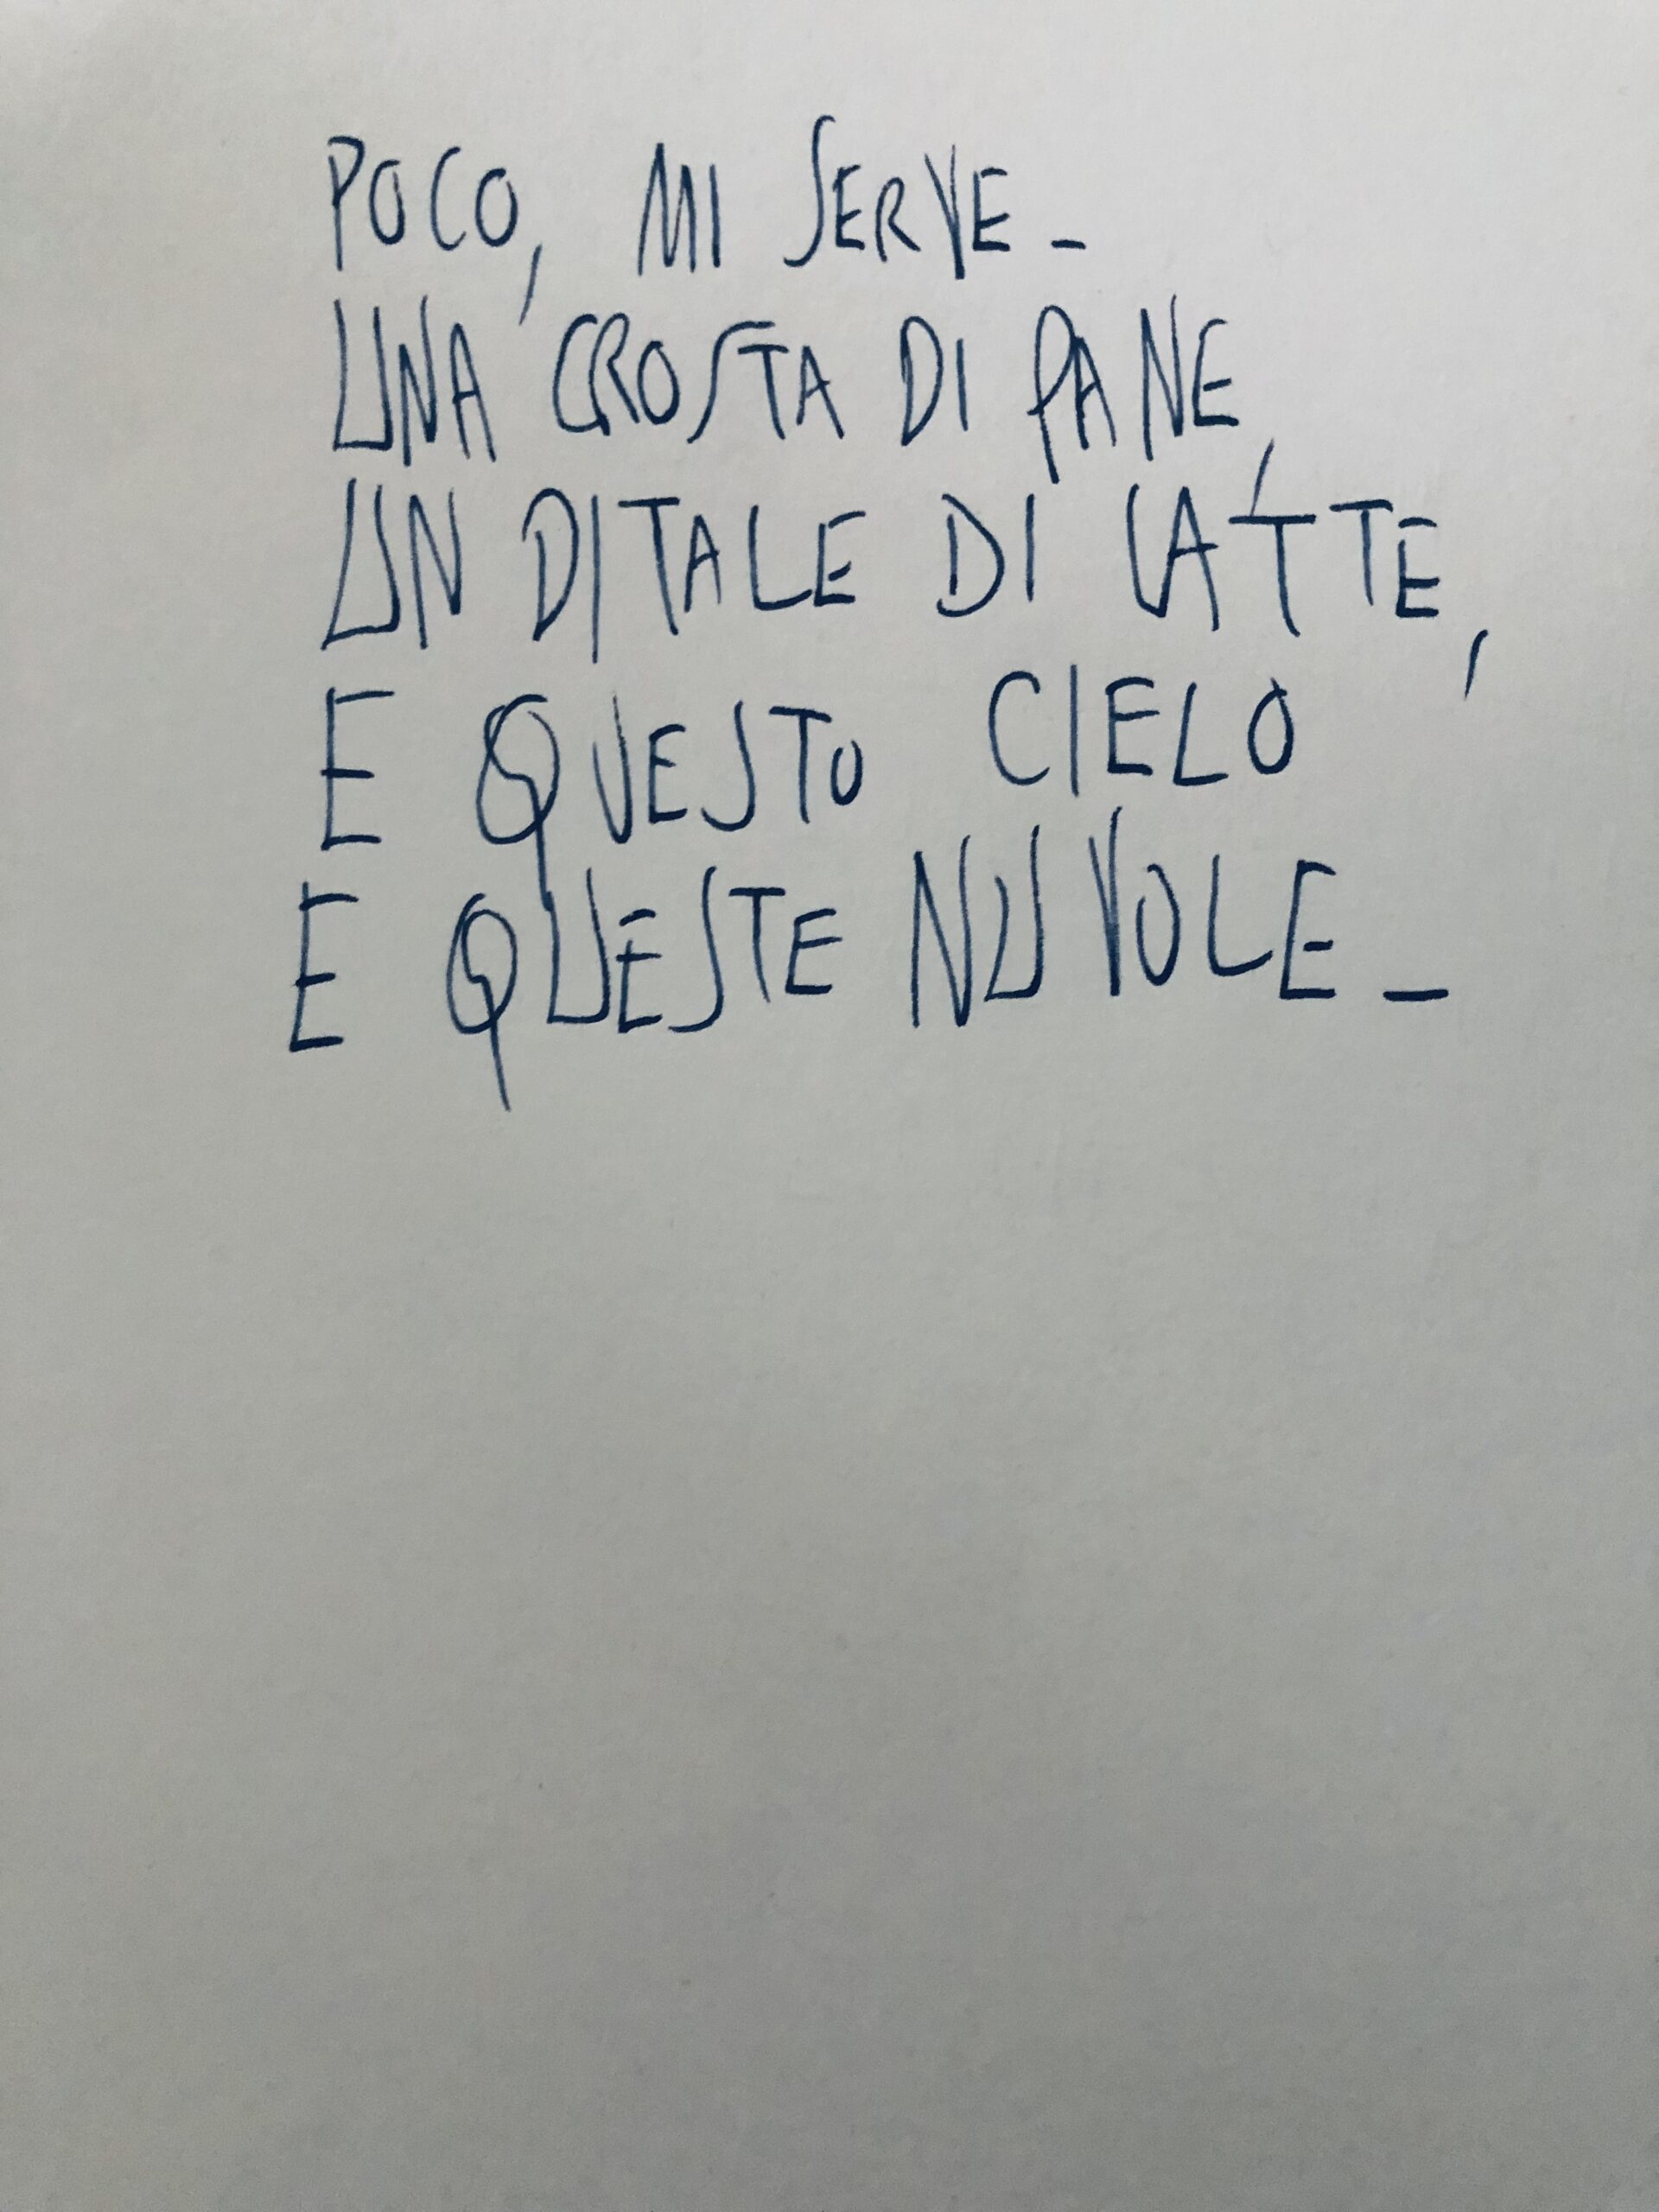 POCO, MI SERVE_
UNA CROSTA DI PANE,
UN DITALE DI LATTE,
E QUESTO CIELO
E QUESTE NUVOLE_